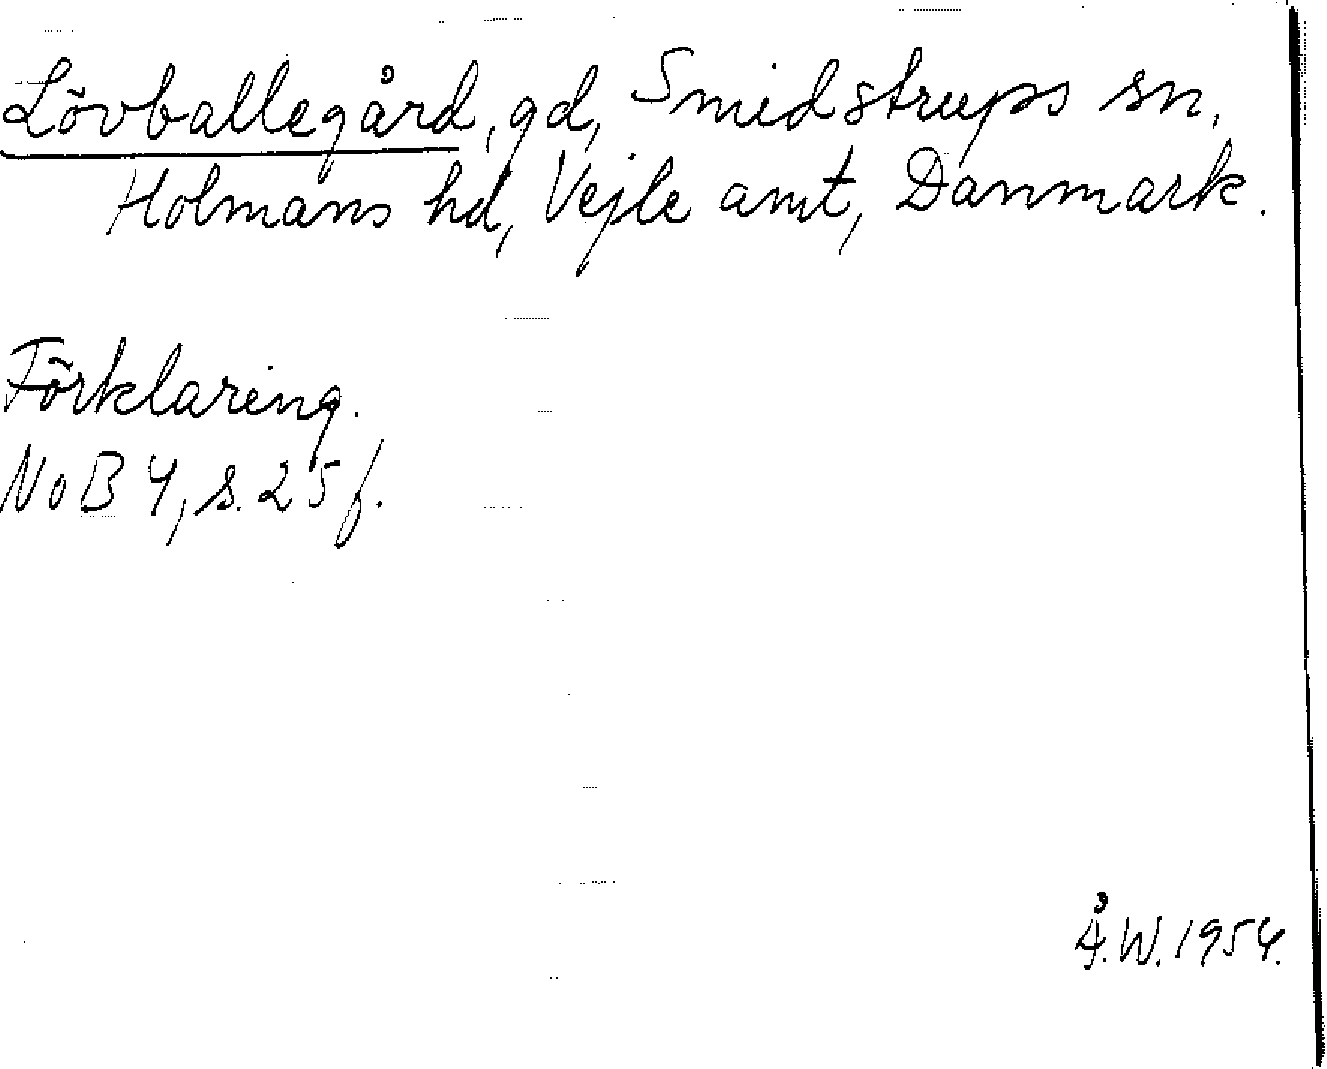 Lövballegård, gd, Smidstrups sn,
Holmans hd, Vejle amt, Danmark.
Förklaring.
NoB 4, s. 25 f.
Å.W. 1954.